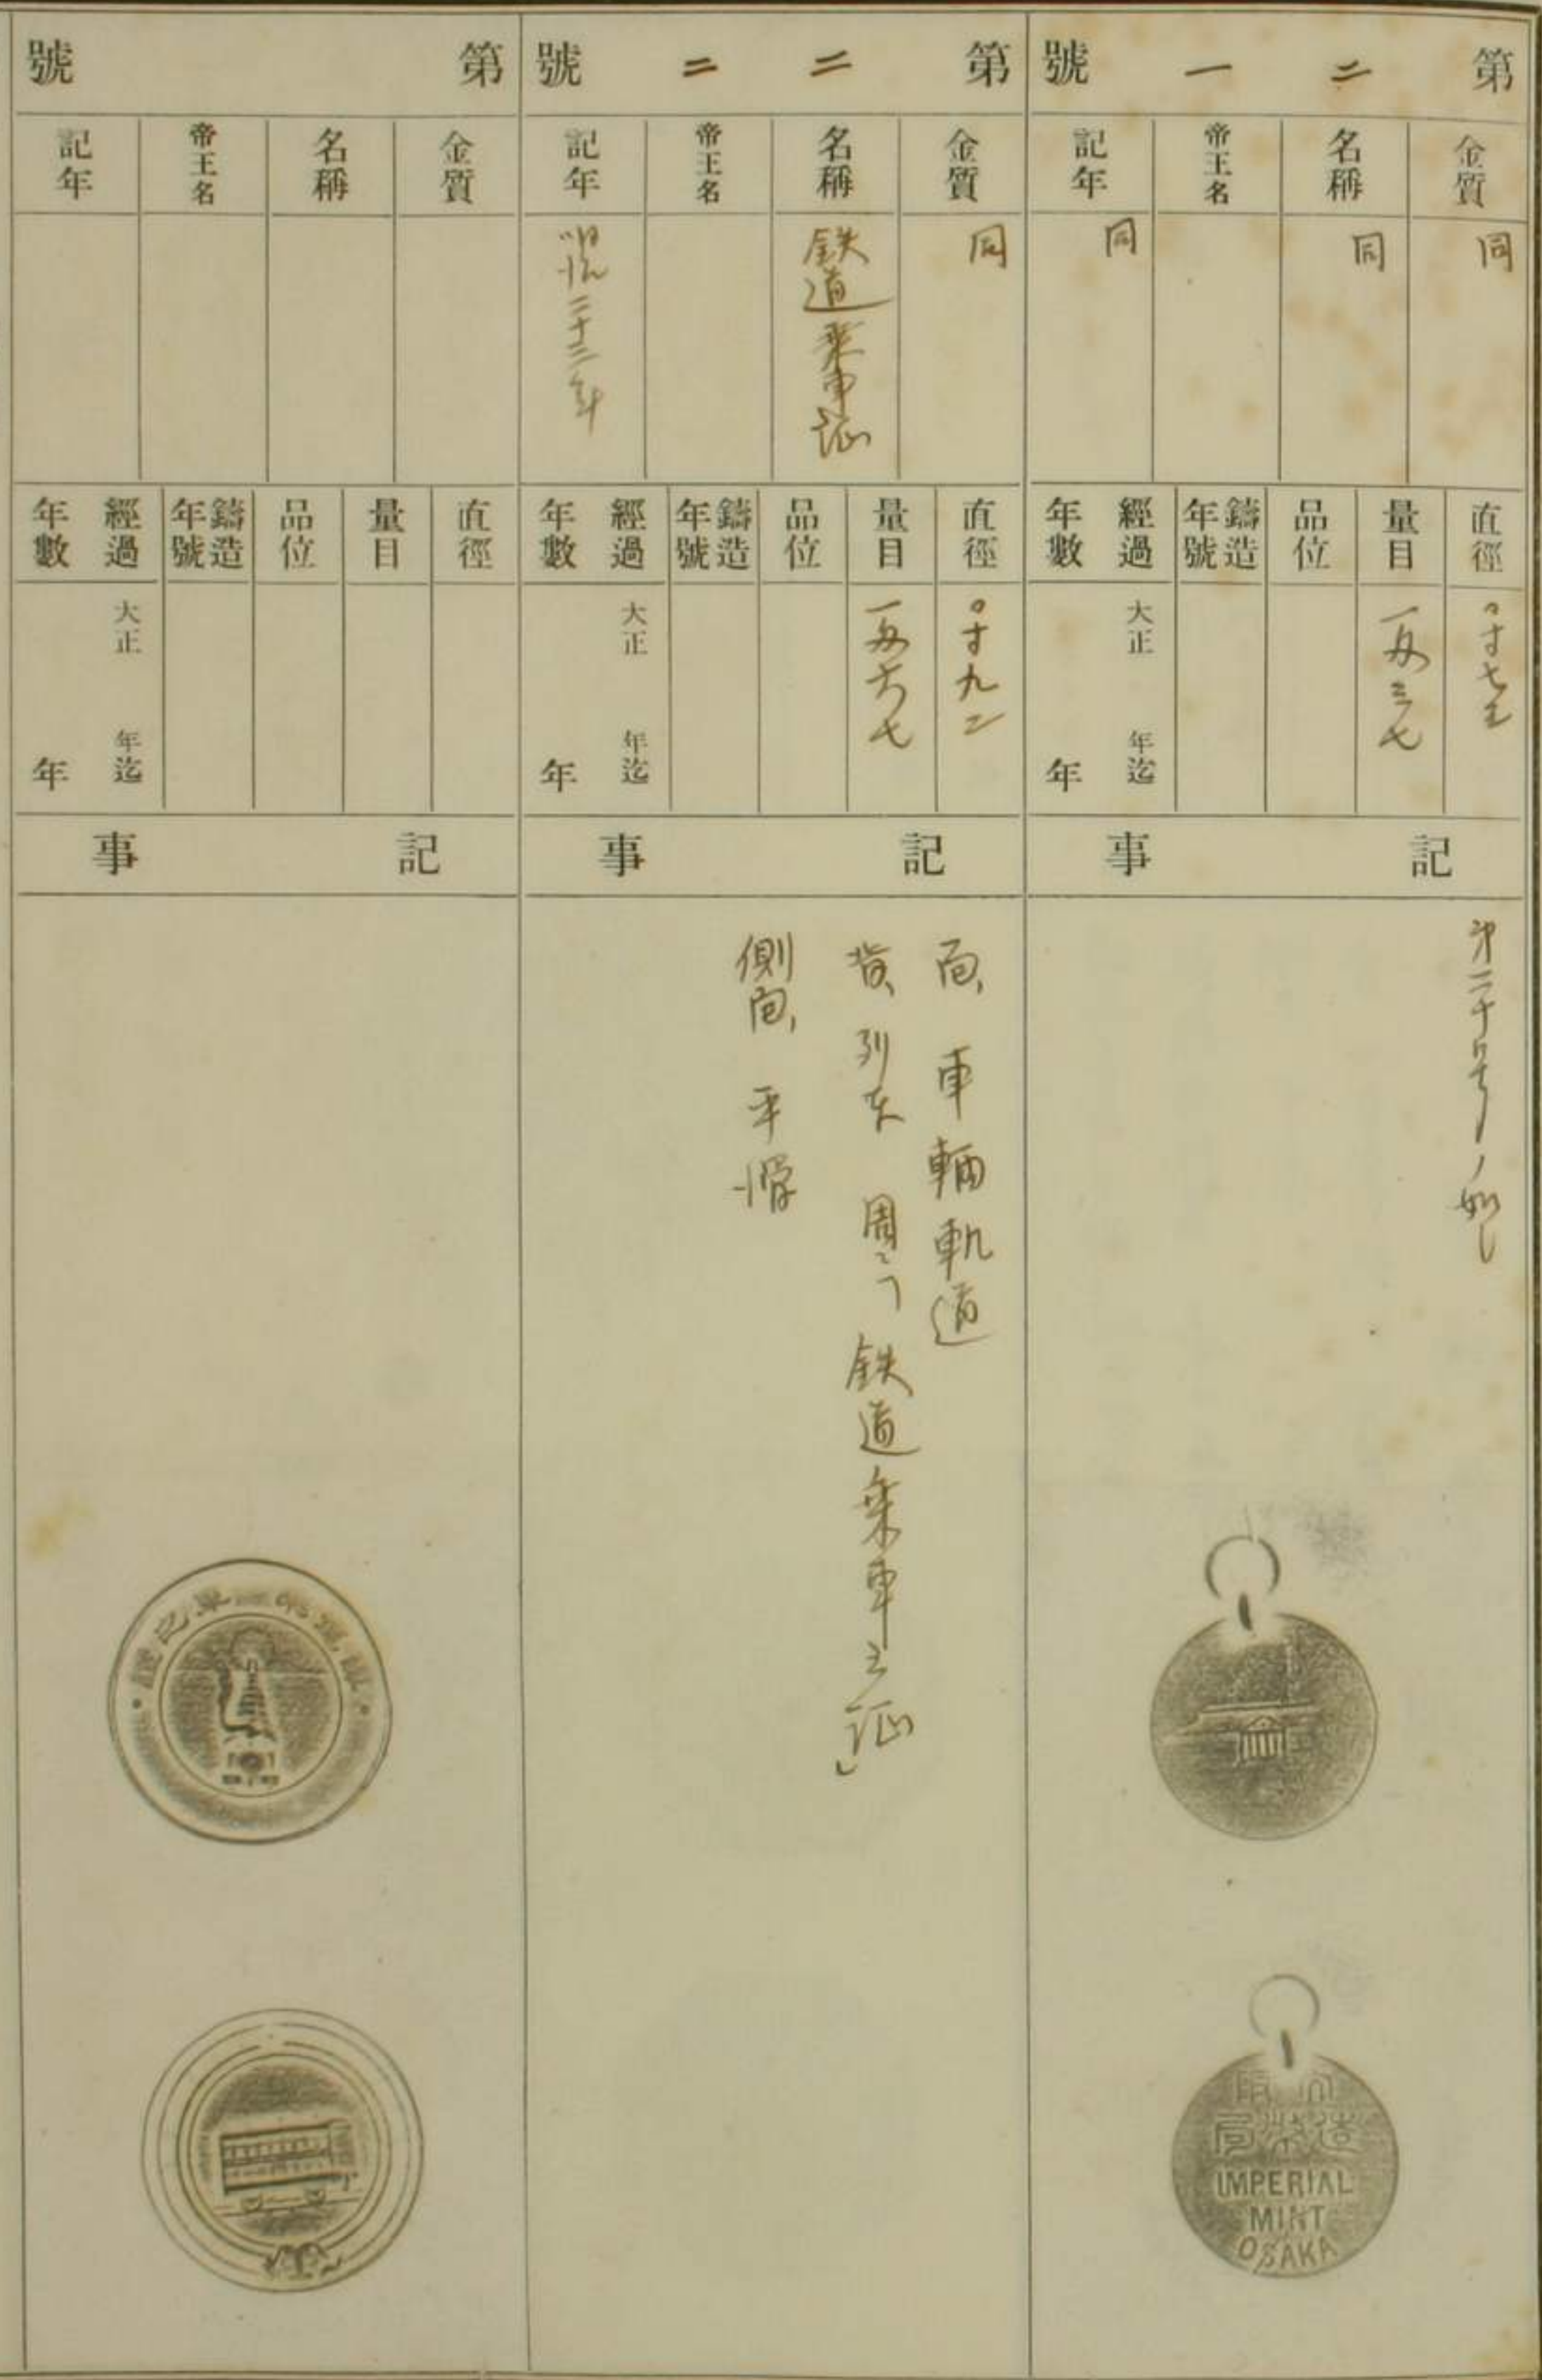 第二一號
金質
同
名稱
同
帝王名
記年
同
直徑
〇寸七五
量目
一匁三七
品位
鑄造年號
經過年數
大正 年迄
年
記事
第二十号ノ如し
IMPERIAL
MINT
OSAKA
第二二號
金質
同
名稱
鉄道乗車証
帝王名
記年
明治三十三年
直徑
〇寸九二
量目
一匁六七
品位
鑄造年號
經過年數
大正 年迄
年
記事
面、車輛軌道
背、列車 周ニ「鉄道乗車之証」
側面、平滑
第 號
金質
名稱
帝王名
記年
直徑
量目
品位
鑄造年號
經過年數
大正 年迄
年
記事